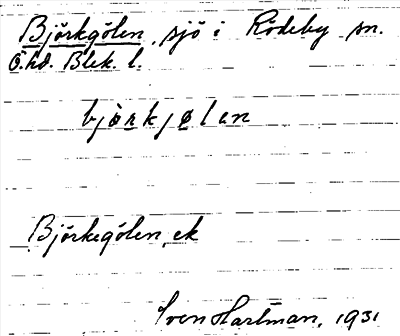 Björkgölen, sjö i Rödeby sn.
Ö. hd. Blek. l.
björkjølen
Björkegölen, ek
Sven Hartman, 1931